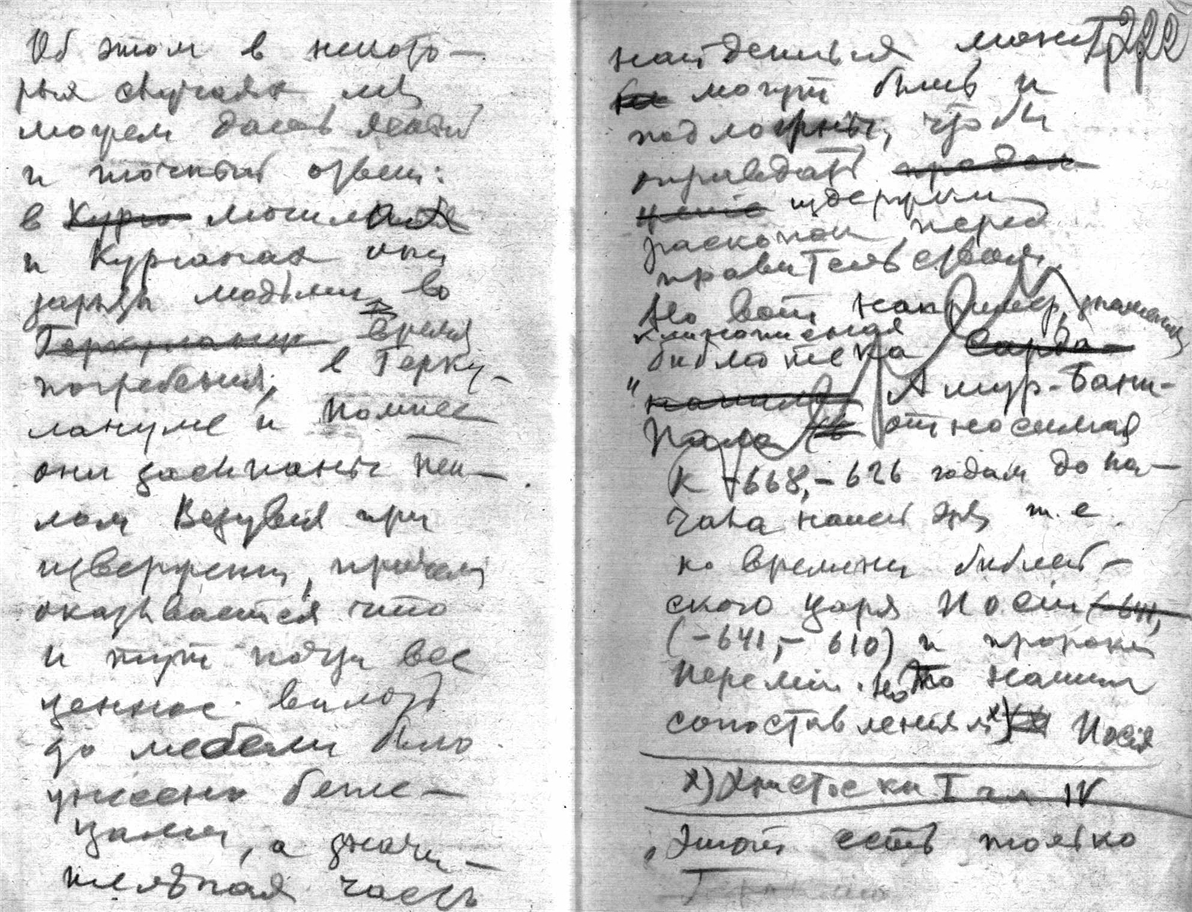 Об этом в некото-
рых случаях мы
можем дать ясный
и точный ответ:
в Курга могилах
и Курганах они
зарыты людьми во
Геркуланум время
погребения, в Герку-
лануме и Помпее
они засыпаны пеп-
лом Везувия при
извержении, причем
оказывается что
и тут почти все
ценное вплоть
до мебели было
унесено бегле-
цами, а значи-
тельная часть
222
найденных
могут быть и
подложны, чтобы
оправдать
издержки
раскопок перед
правительством.
Но вот например, знаменитая
клинописная
библиотека Сарда-
"напала Ашур-Бани-
пала относимая
к -668,-626 годам до на-
чала нашей эры т.е.
ко времени библей-
ского царя Иосии (-641,
(-641,- 610) и пророка
Иеремии. Но по нашим
сопоставлениям х) Иосия
х) Христос кн I гл IV
этот есть только